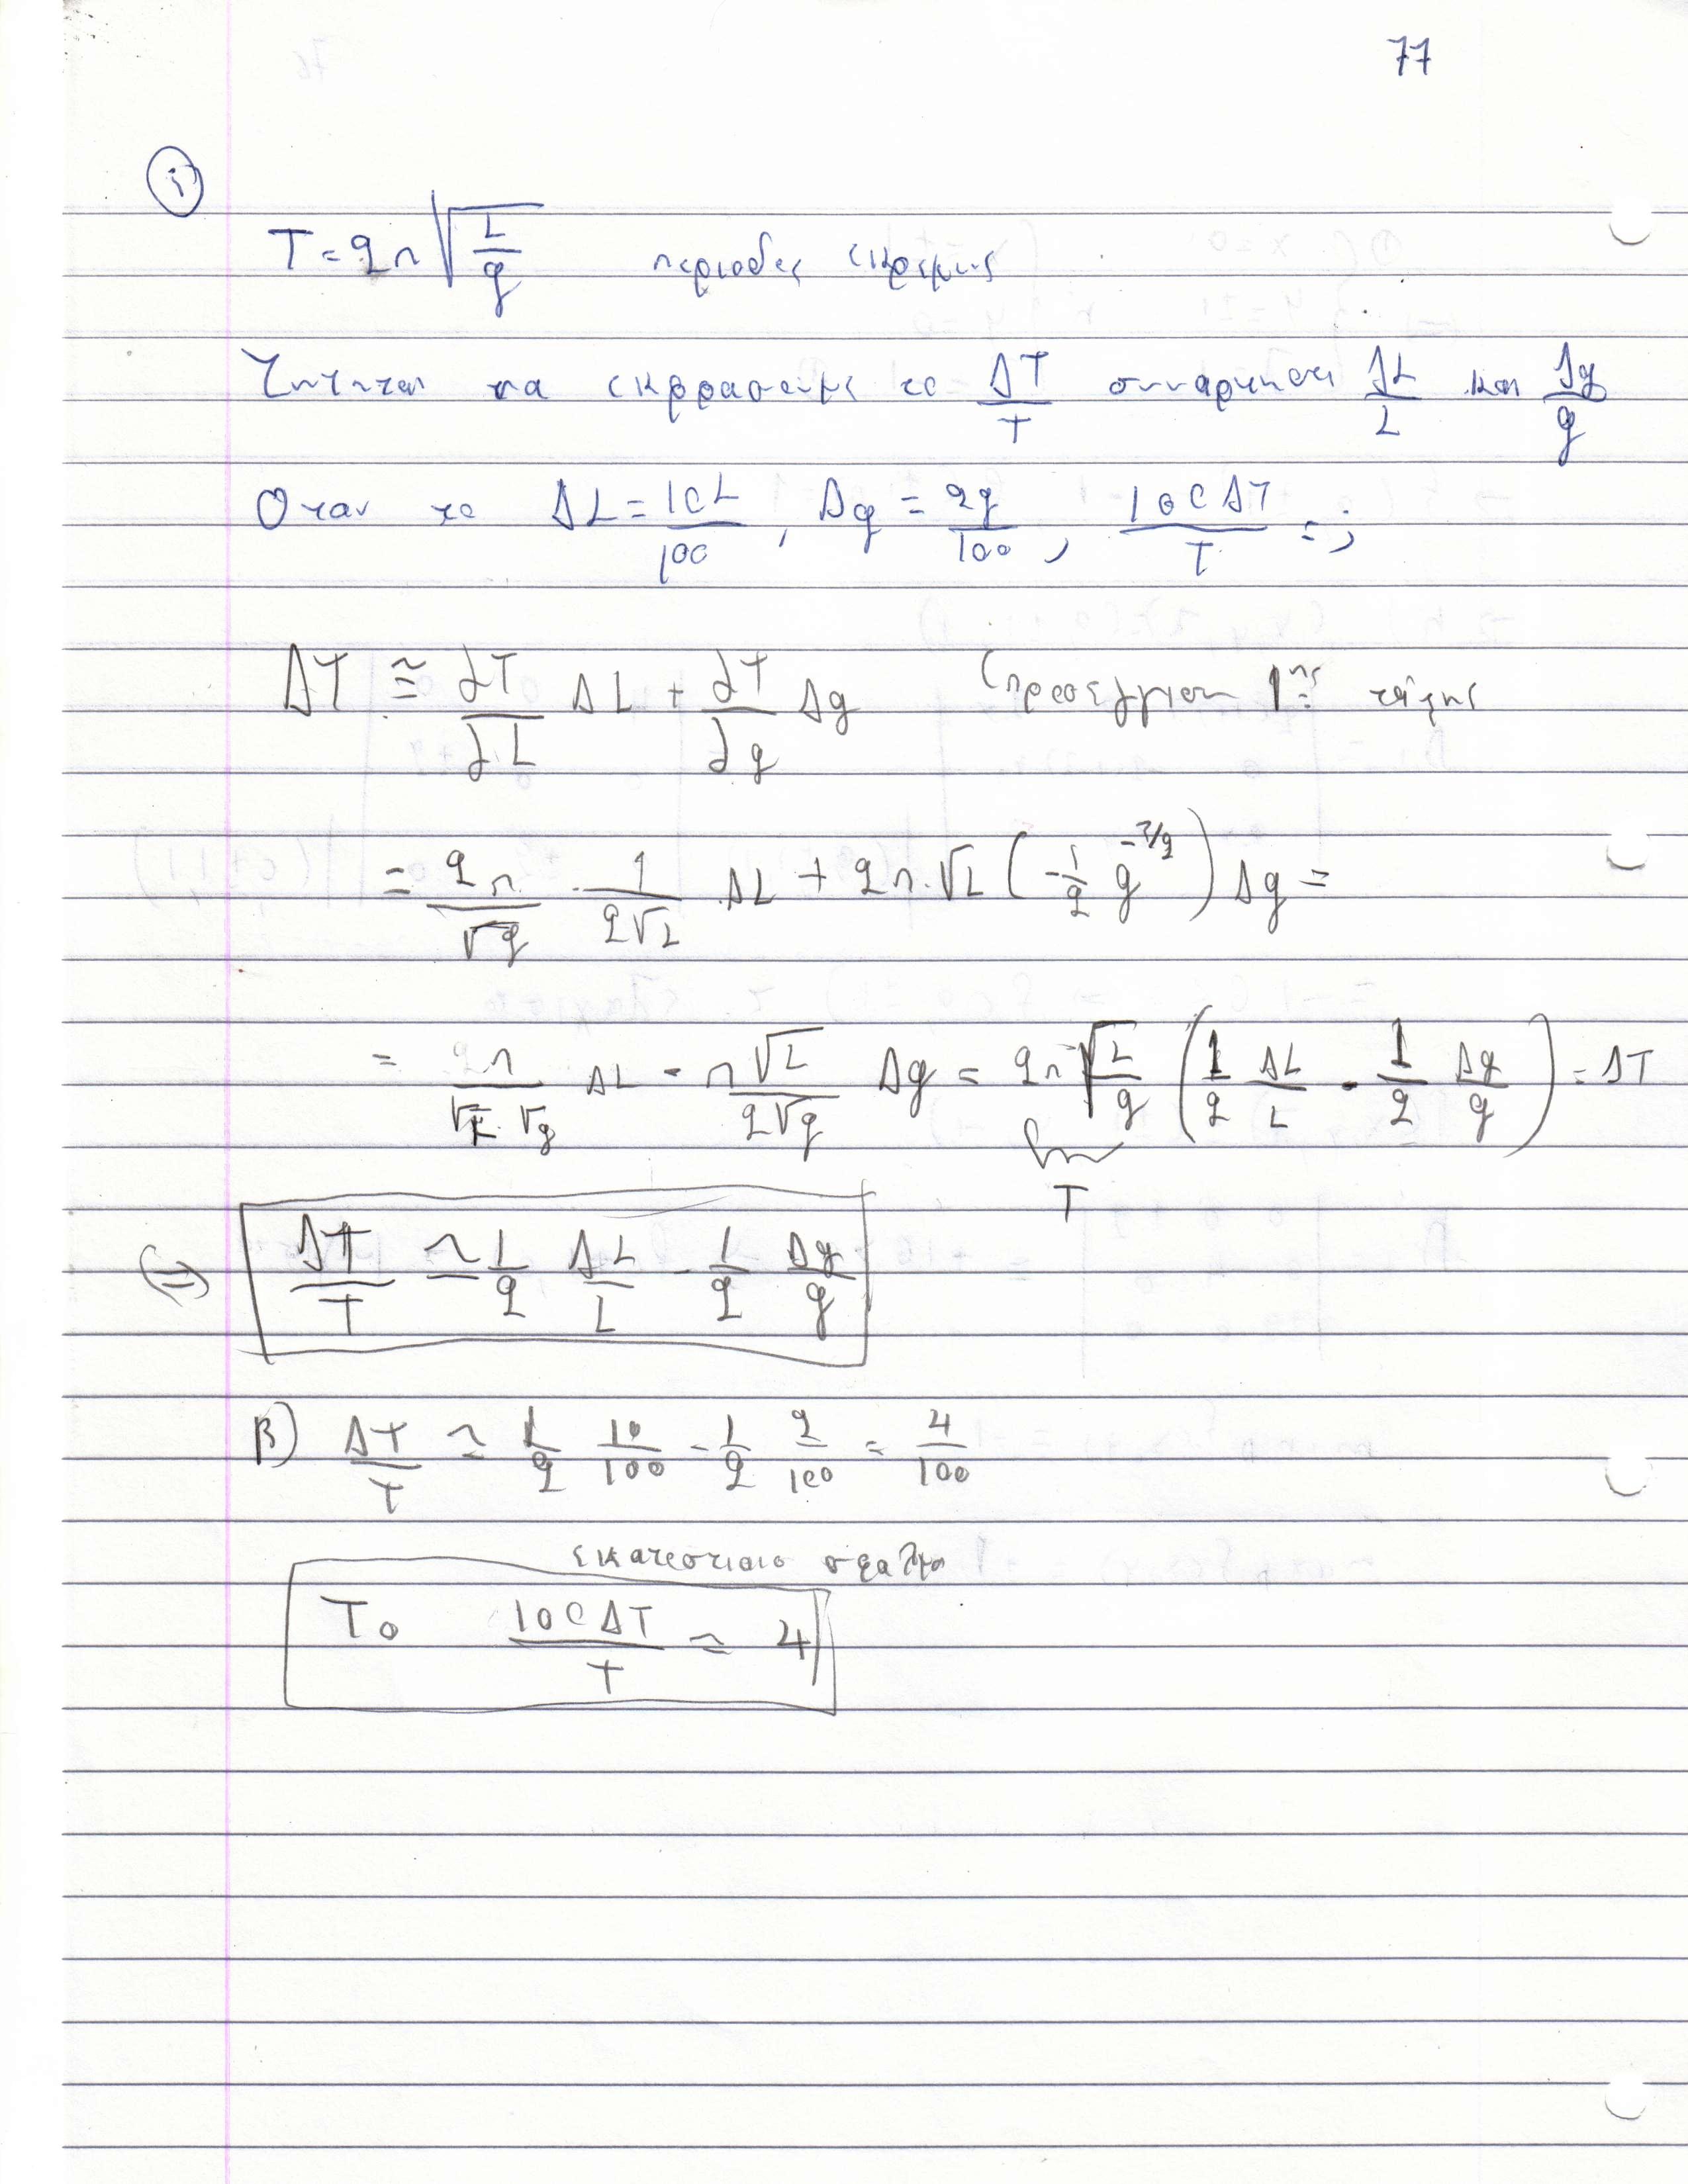 77
i)
T = 2π √(L/g) περιοδος εκκρεμους
Ζητηται να εκφρασουμε το ΔT/T συναρτησει ΔL/L και Δg/g
Οταν το ΔL = 10L/100 , Δg = 2g/100 , 100ΔT/T = ;
ΔT ≅ ∂T/∂L ΔL + ∂T/∂g Δg (προσεγγιση 1ης τάξης
= 2π/√g · 1/(2√L) ΔL + 2π·√L (-1/2 g^(-3/2)) Δg =
= π/(√L·√g) ΔL - π√L/(2√g) Δg = 2π √(L/g) (1/2 ΔL/L - 1/2 Δg/g) = ΔT
T
⇔ ΔT/T ≃ 1/2 ΔL/L - 1/2 Δg/g
β) ΔT/T ≃ 1/2 10/100 - 1/2 2/100 = 4/100
εκατοστιαιο σφαλμα
Το 100ΔT/T ≃ 4